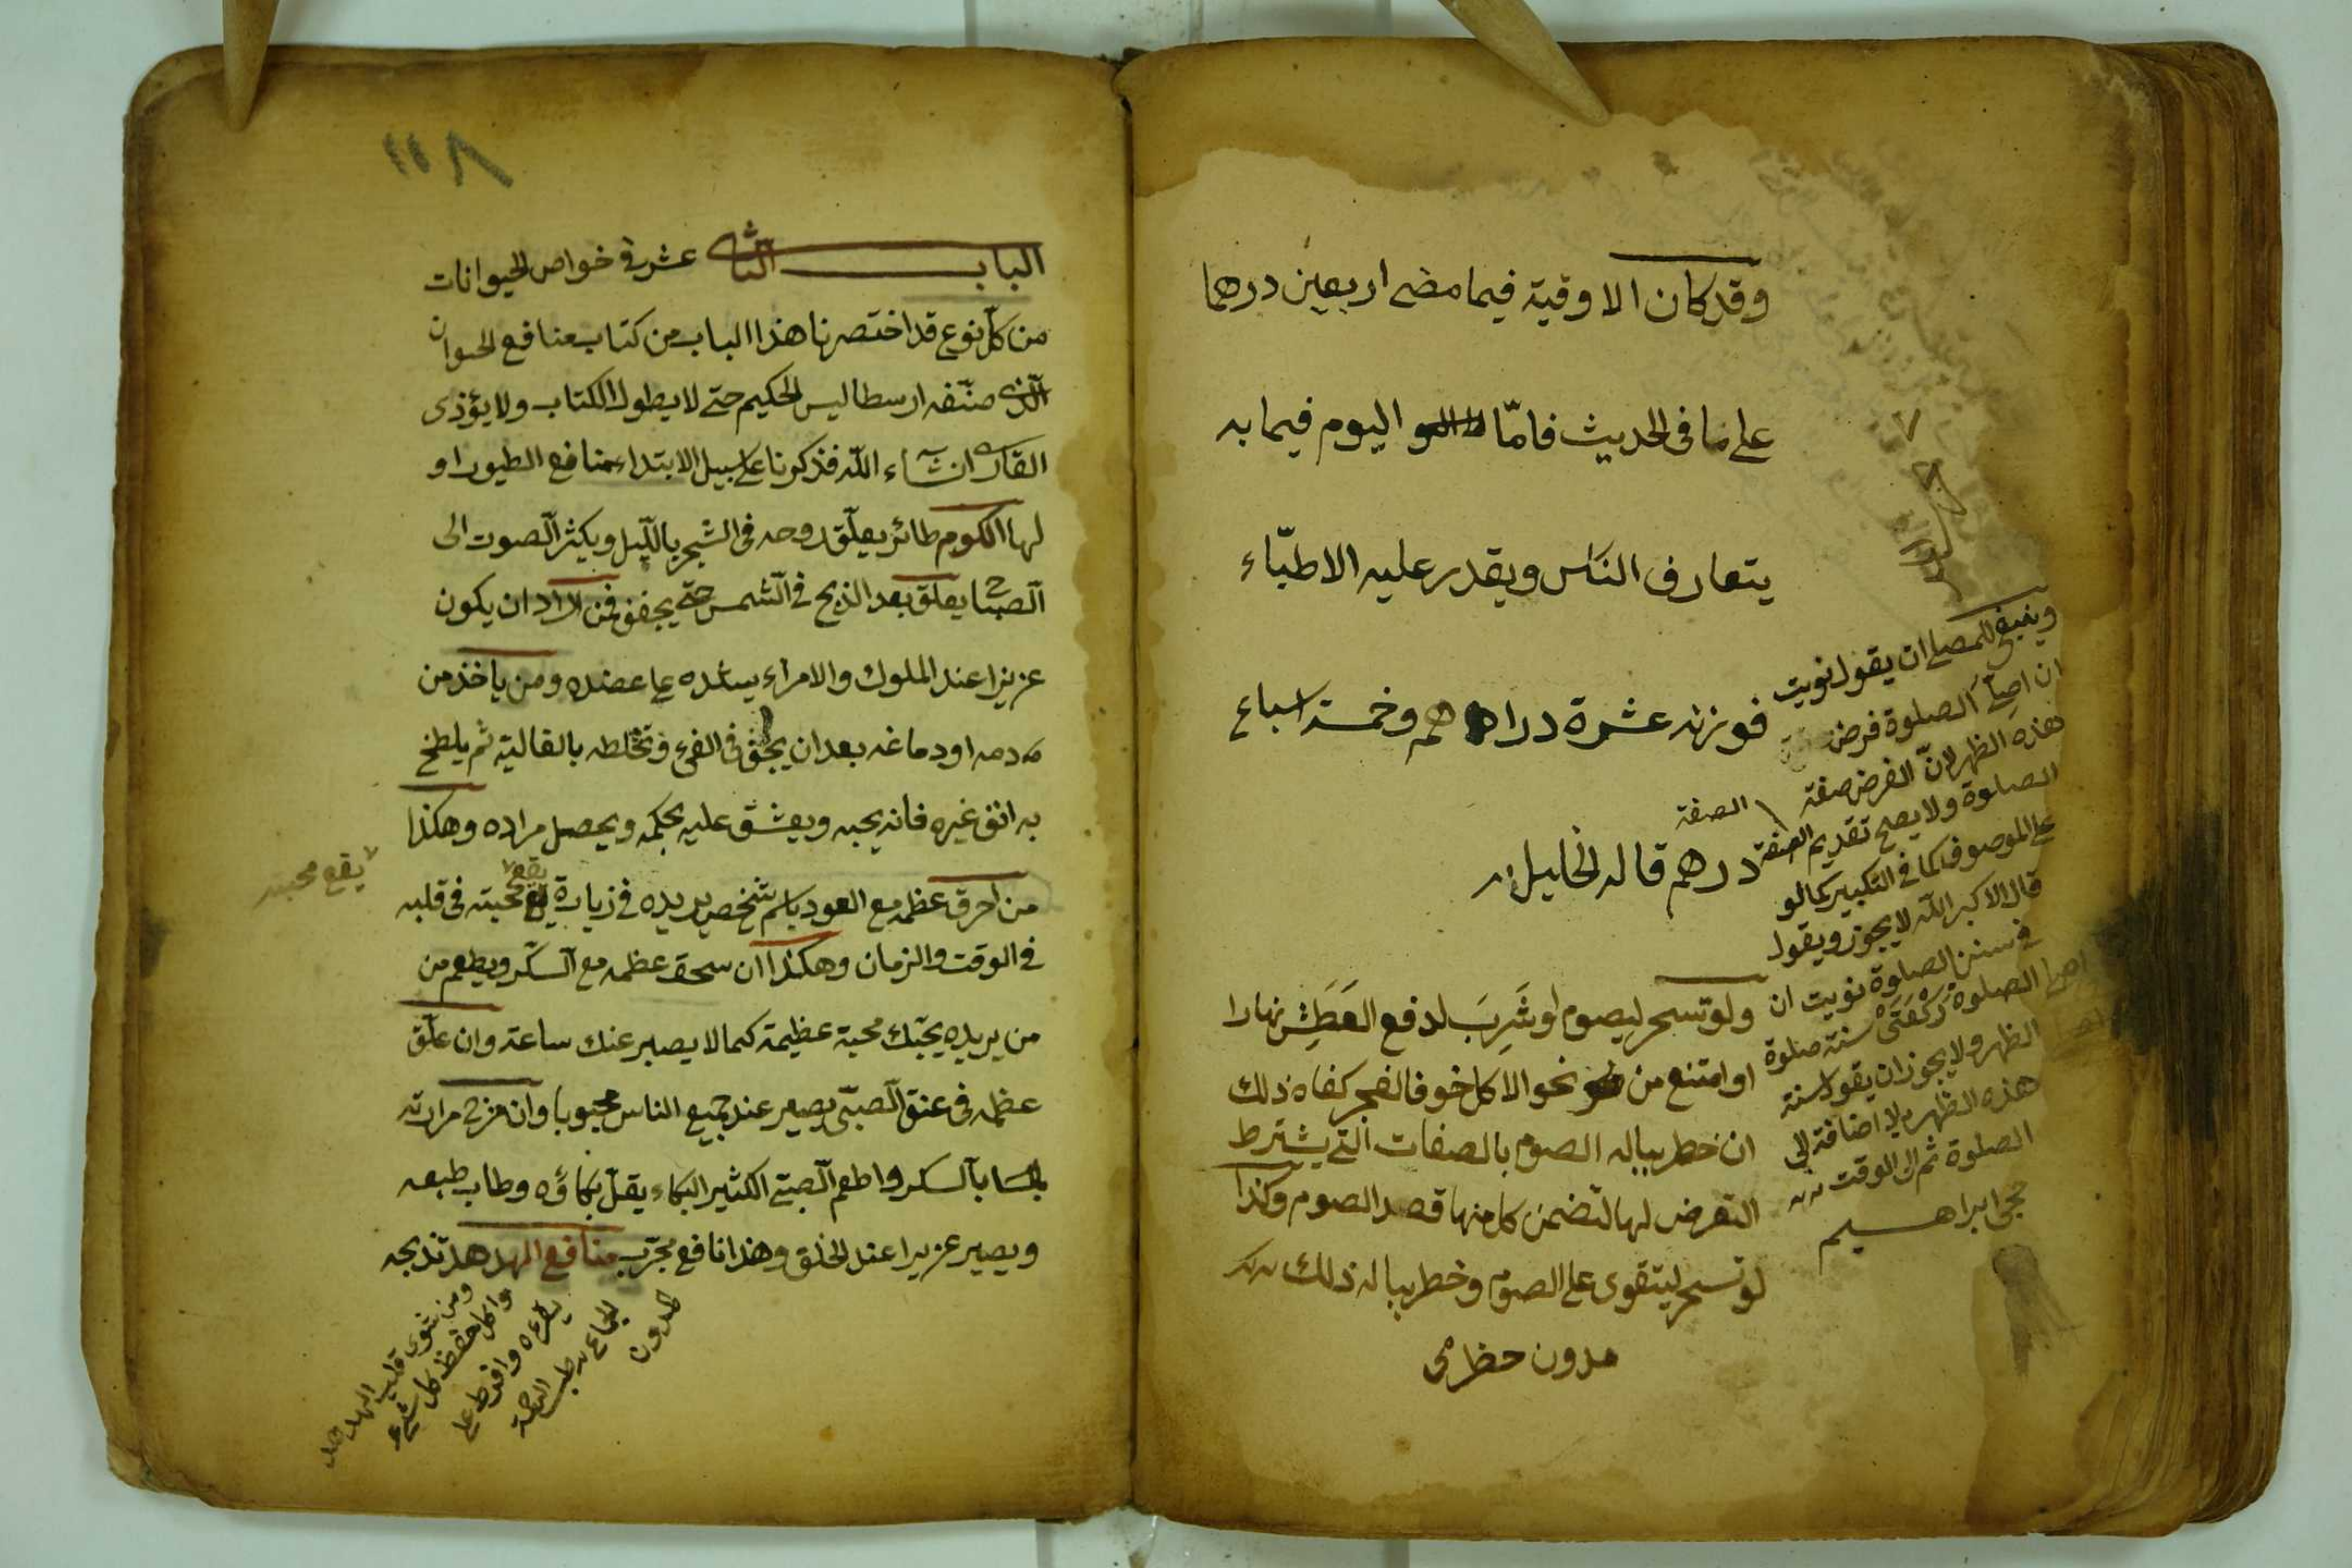 وقد كان الاوقية فيما مضى اربعين درهما
على ما فى الحديث فامّا اليوم فيما به
يتعارف النّاس ويقدر عليه الاطبّاء
فوزنه عشرة دراهم وخمسة اسباع
درهم قاله الخليل
ولو تسحر ليصوم او شَرِبَ لدفع العَطَشِ نهارا
او امتنع من نحو الاكل خوف الفجر كفاه ذلك
ان خطر بباله الصوم بالصفات التى يشترط
التعرض لها لتضمن كل منها قصد الصوم وكذا
لو تسحر ليتقوى على الصوم وخطر بباله ذلك
مدون
وينبغى للمصلى ان يقول نويت
ان اصلّى الصلوة فرض
هذه الظهر لانّ الفرض صفة
الصلوة ولا يصح تقديم الصفة
الصفة
على الموصوف كما فى التكبير كما لو
قال الاكبر الله لا يجوز ويقول
فى سنن الصلوة نويت ان
اصلى الصلوة رَكْعَتَىْ سنة صلوة
الظهر ولا يجوز ان يقول سنة
هذه الظهر بلا اضافة الى
الصلوة ثم الى الوقت
ابراهيم
١١٨
الباب الثانى عشر فى خواص الحيوانات
من كلّ نوع قد اختصرنا هذا الباب من كتاب منافع الحيوان
الّذى صنّفه ارسطاليس الحكيم حتى لا يطول الكتاب ولا يؤذى
القارى ان شاء الله فذكرنا على سبيل الابتداء منافع الطيور او
لها الكوم طائر يعلّق روحه فى الشجر بالّليل ويكثر الصوت الى
الصباح يعلق بعد الذبح فى الشمس حتى يجفف فمن اراد ان يكون
عزيزا عند الملوك والامراء يشده على عضده ومن ياخذ من
دمه او دماغه بعد ان يجفّ فى الفىء وتخلطه بالغالية ثم يلطخ
به انف غيره فانه يحبه ويعشق عليه بحكمه ويحصل مراده وهكذا
من احرق عظمه مع العود باسم شخص يريده فى زيارة يقع محبته فى قلبه
يقع محبته
فى الوقت والزمان وهكذا ان سحق عظمه مع السكّر ويطعم من
من يريده يحبّك محبة عظيمة كما لا يصبر عنك ساعة وان علّق
عظمه فى عنق الصبىّ يصير عند جميع الناس محبوبا وان مزج مرارته
بالسكر واطعم الصبى الكثير البكاء يقلّ بكاؤه وطاب طبعه
ويصير عزيزا عند الخلق وهذا نافع مجرّب منافع الهدهد تذبحه
ومن شوى قلب الهدهد
واكل حفظ كل شىء
يقرءه وافرط على
الجماع طب الرحمة